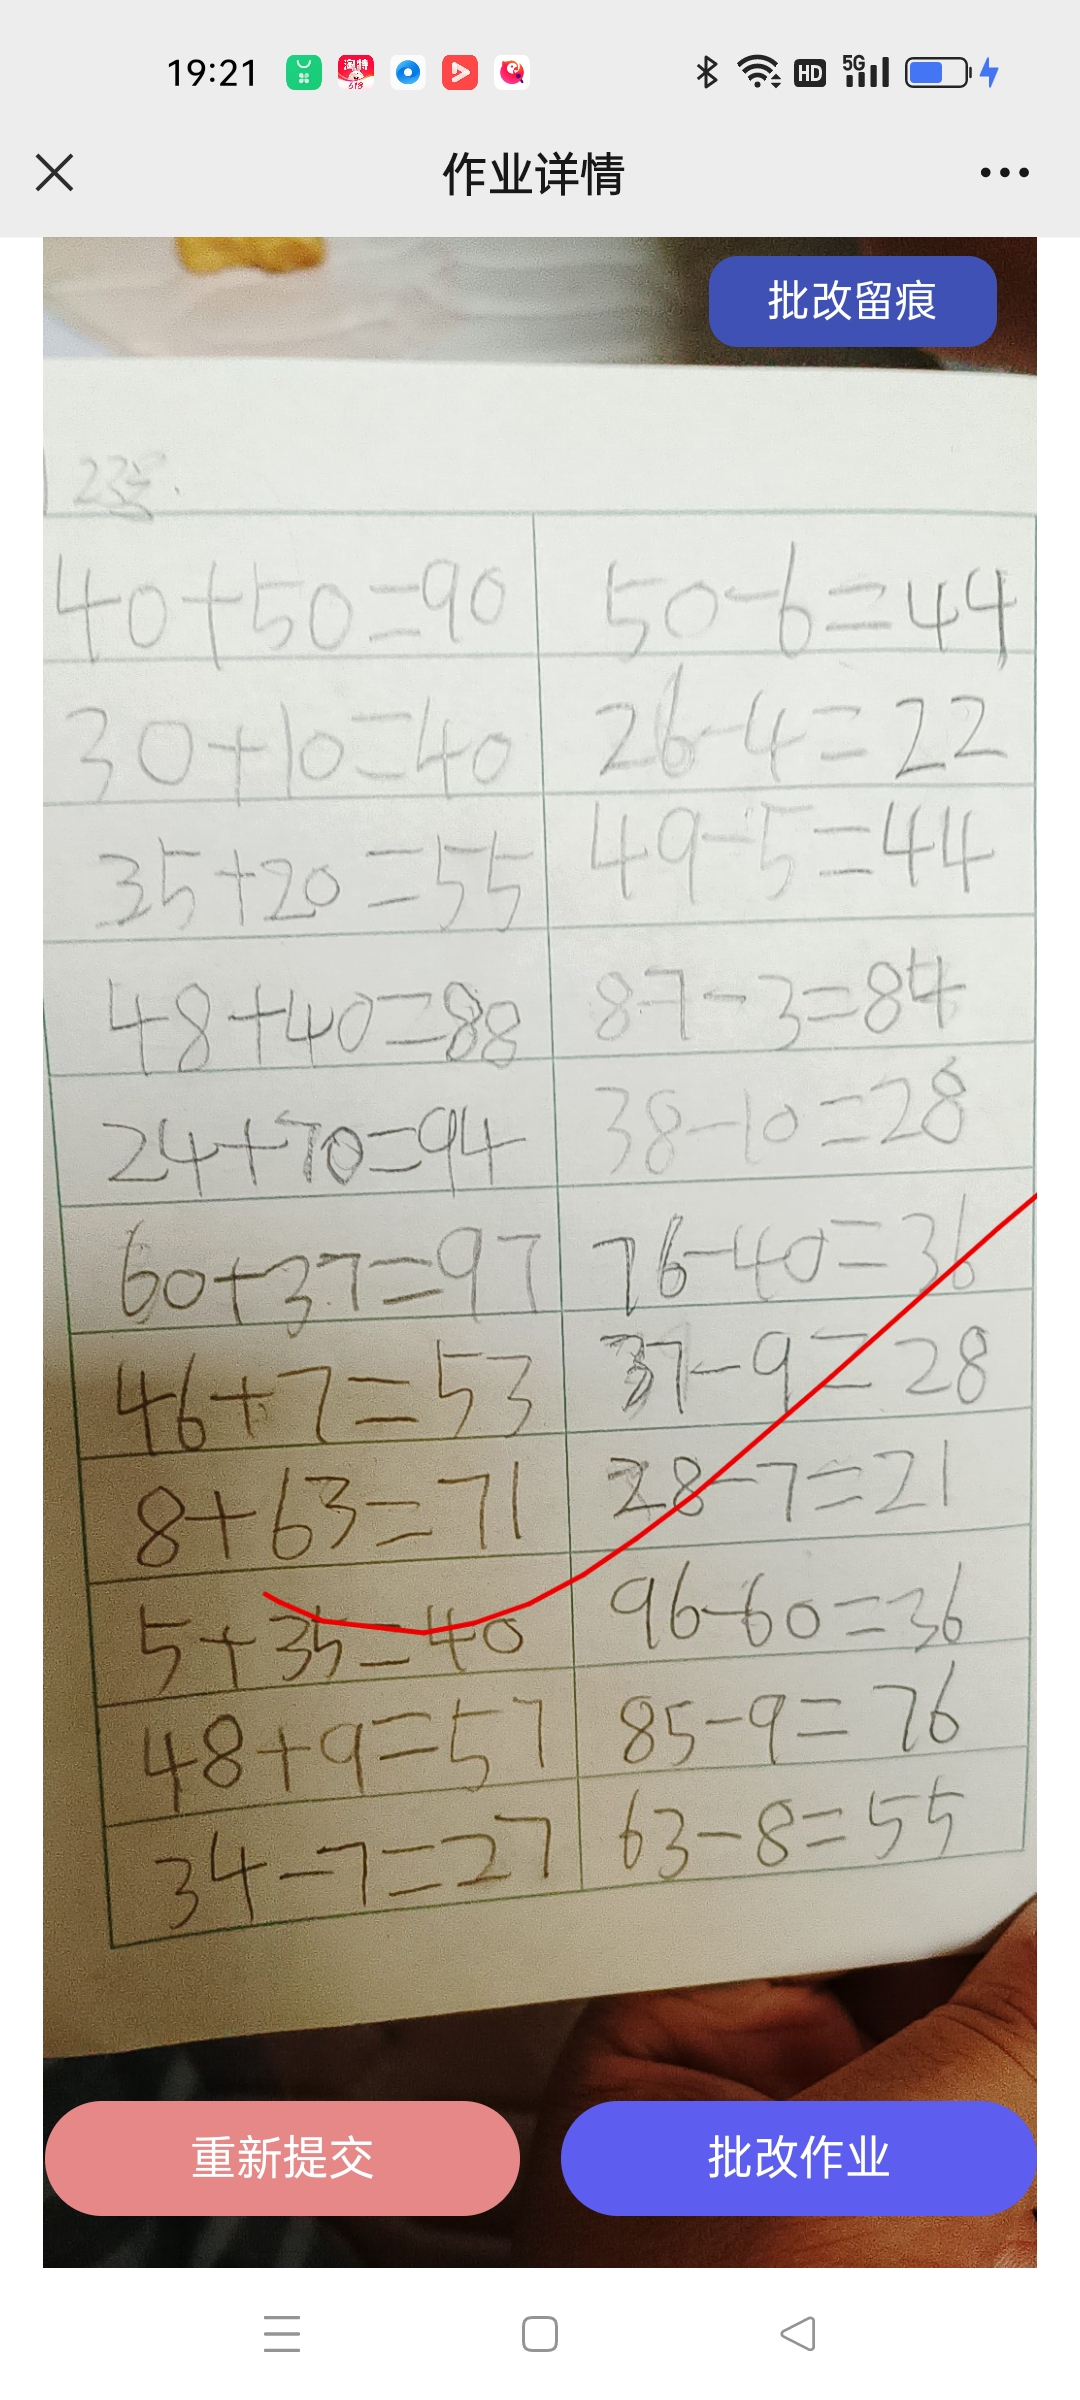 19:21
淘特
618
HD
5G
作业详情
批改留痕
40+50=90
50-6=44
30+10=40
26-4=22
35+20=55
49-5=44
48+40=88
87-3=84
24+70=94
38-10=28
60+37=97
76-40=36
46+7=53
37-9=28
8+63=71
28-7=21
5+35=40
96-60=36
48+9=57
85-9=76
34-7=27
63-8=55
重新提交
批改作业